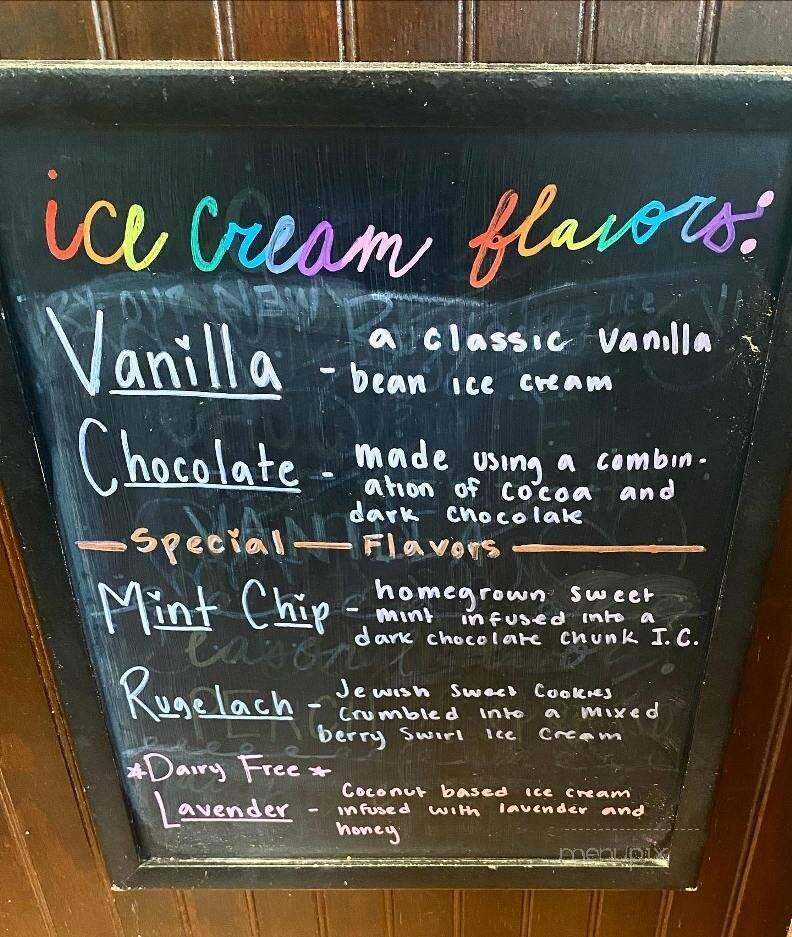 ice cream flavors:
Vanilla - a classic vanilla
bean ice cream
Chocolate - made using a combin-
ation of cocoa and
dark chocolate
Special Flavors
Mint Chip - homegrown sweet
mint infused into a
dark chocolate chunk I.C.
Rugelach - Jewish sweet cookies
crumbled into a mixed
berry swirl ice cream
*Dairy Free*
Lavender - Coconut based ice cream
infused with lavender and
honey
menupix